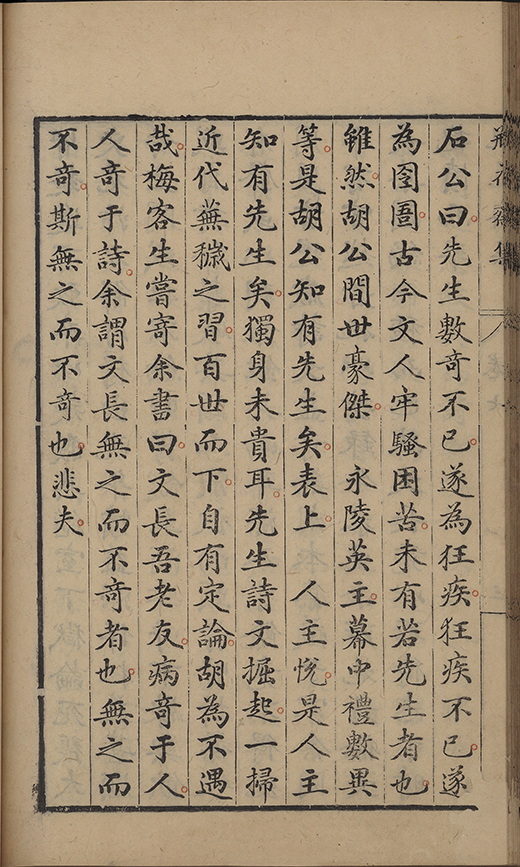 瓶花齋集
石公曰先生數竒不已遂為狂疾狂疾不已遂
為囹圄古今文人牢騷困苦未有若先生者也
雖然胡公間世豪傑　永陵英主幕中禮數異
等是胡公知有先生矣表上　人主悅是人主
知有先生矣獨身未貴耳先生詩文掘起一掃
近代蕪穢之習百世而下自有定論胡為不遇
哉梅客生嘗寄余書曰文長吾老友病竒于人
人竒于詩余謂文長無之而不竒者也無之而
不竒斯無之而不竒也悲夫